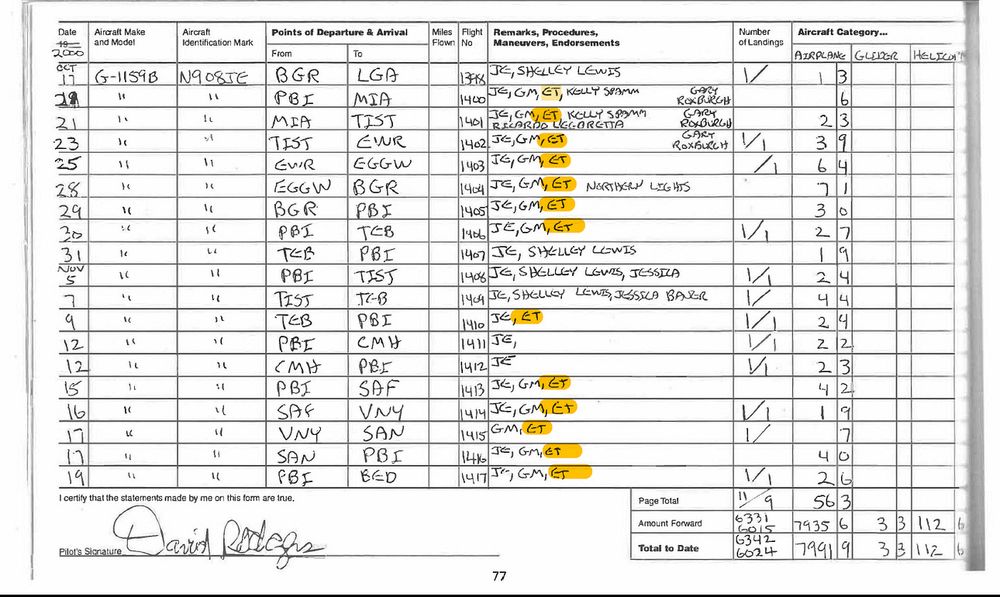 Date Aircraft Make and Model Aircraft Identification Mark Points of Departure & Arrival Miles Flown Flight No Remarks, Procedures, Maneuvers, Endorsements Number of Landings Aircraft Category...
19 2000 From To AIRPLANE GLIDER
OCT 17 G-1159B N908JE BGR LGA 1398 JE, SHELLEY LEWIS 1/ 1 3
" " PBI MIA 1400 JE, GM, ET, KELLY SPAMM GARY ROXBURGH 6
21 " " MIA TIST 1401 JE, GM, ET, KELLY SPAMM GARY ROXBURGH 2 3
RICARDO LEGARETTA
23 " " TIST EWR 1402 JE, GM, ET GARY ROXBURGH 1/1 3 9
25 " " EWR EGGW 1403 JE, GM, ET /1 6 4
28 " " EGGW BGR 1404 JE, GM, ET NORTHERN LIGHTS 7 1
29 " " BGR PBI 1405 JE, GM, ET 3 0
30 " " PBI TEB 1406 JE, GM, ET 1/1 2 7
31 " " TEB PBI 1407 JE, SHELLEY LEWIS 1 9
NOV 5 " " PBI TIST 1408 JE, SHELLEY LEWIS, JESSICA 1/1 2 4
7 " " TIST TEB 1409 JE, SHELLEY LEWIS, JESSICA 1/ 4 4
9 " " TEB PBI 1410 JE, ET 1/1 2 4
12 " " PBI CMH 1411 JE, 1/1 2 2
12 " " CMH PBI 1412 JE 1/1 2 3
15 " " PBI SAF 1413 JE, GM, ET 4 2
16 " " SAF VNY 1414 JE, GM, ET 1/1 1 9
17 " " VNY SAN 1415 GM, ET 1/ 7
17 " " SAN PBI 1416 JE, GM, ET 4 0
19 " " PBI BED 1417 JE, GM, ET 1/1 2 6
I certify that the statements made by me on this form are true. Page Total 11/9 56 3
Amount Forward 6331 6015 7935 6 3 3 112 6
Pilot's Signature David Rodgers Total to Date 6342 6024 7991 9 3 3 112 6
77